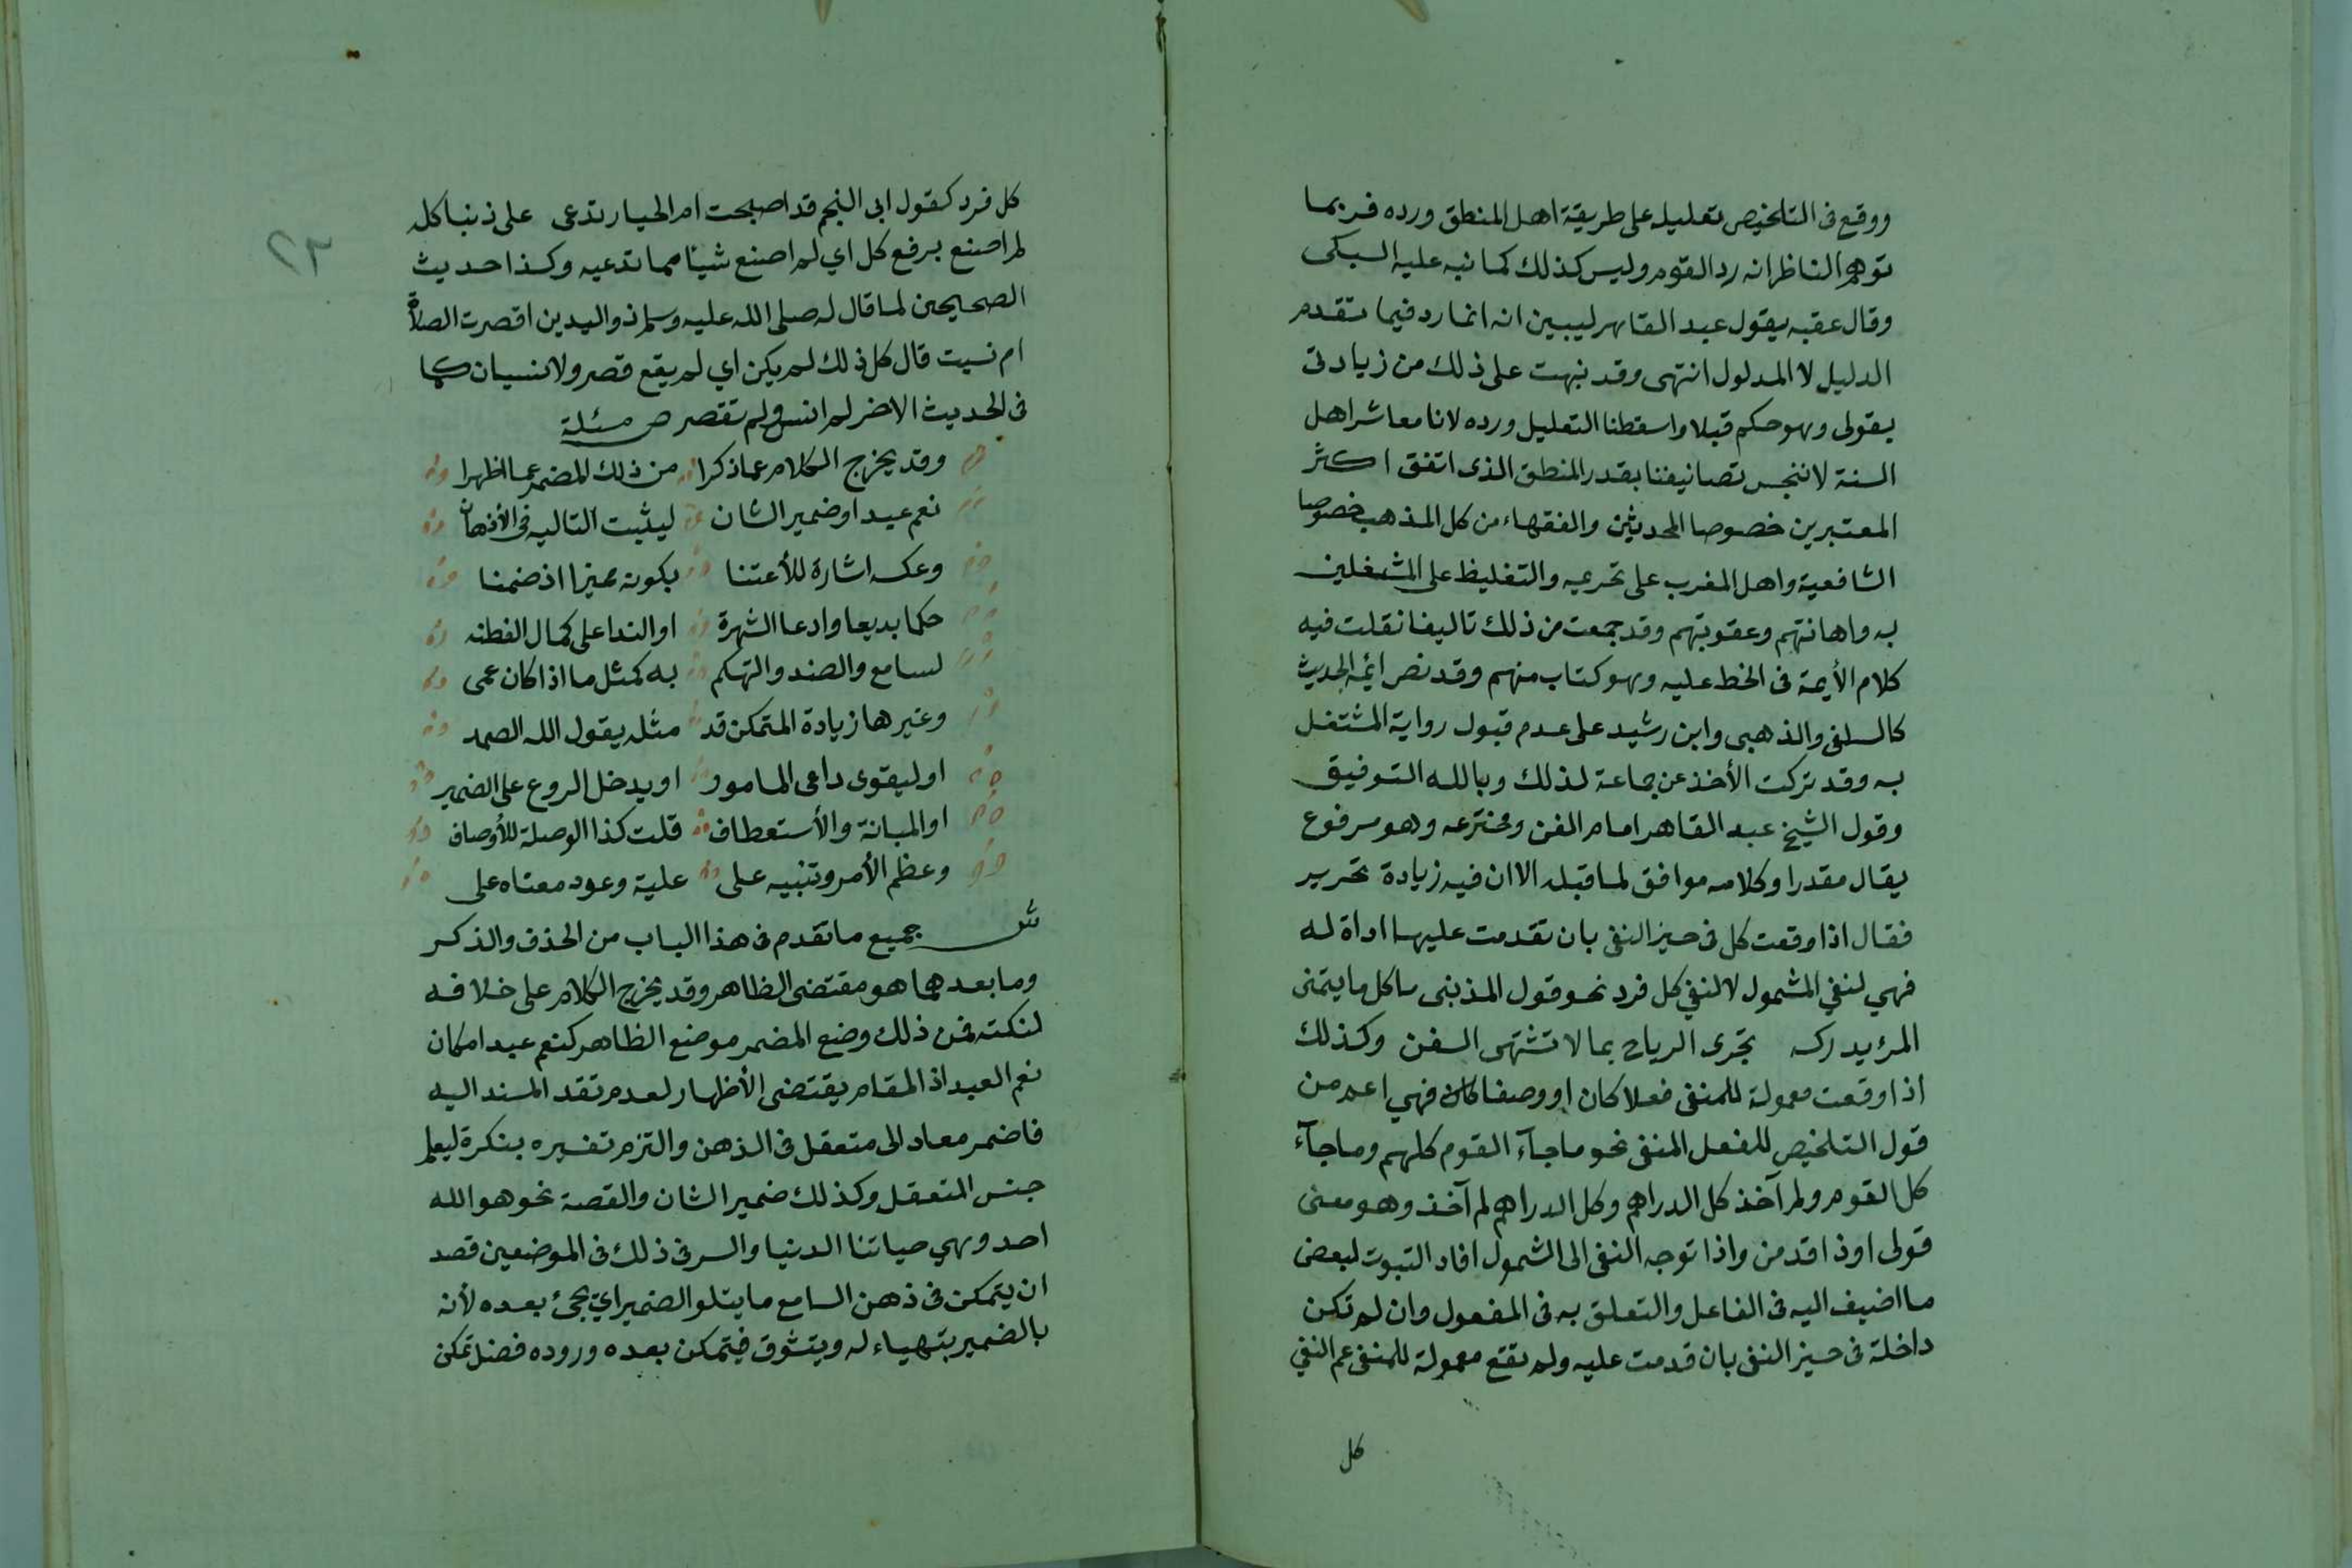 ووقع فى التلخيص تعليله على طريقة اهل المنطق ورده فربما
توهم الناظر انه رد القوم وليس كذلك كما نبه عليه السبكى
وقال عقبه يقول عبد القاهر ليبين انه انما رد فيما تقدم
الدليل لا المدلول انتهى وقد نبهت على ذلك من زيادتى
بقولى وهو حكم قبلا واسقطنا التعليل ورده لانا معاشر اهل
السنة لا ننجس تصانيفنا بقدر المنطق الذى اتفق اكثر
المعتبرين خصوصا المحدثين والفقهاء من كل المذهب خصوصا
الشافعية واهل المغرب على تحريمه والتغليظ على المشتغلين
به واهانتهم وعقوبتهم وقد جمعت من ذلك تاليفا نقلت فيه
كلام الأيمة فى الخط عليه وهو كتاب منهم وقد نص ائمة الحديث
كالسلفى والذهبى وابن رشيد على عدم قبول رواية المشتغل
به وقد تركت الأخذ عن جماعة لذلك وبالله التوفيق
وقول الشيخ عبد القاهر امام الفن ومخترعه وهو مرفوع
يقال مقدرا وكلامه موافق لما قبله الا ان فيه زيادة تحرير
فقال اذا وقعت كل فى حيز النفى بان تقدمت عليها اداة له
فهي لنفي الشمول لا لنفي كل فرد نحو قول المذبنى ما كل ما يتمنى
المرٔ يدركه تجرى الرياح بما لا تشتهى السفن وكذلك
اذا وقعت معمولة للمنفى فعلا كان او وصفا كان فهي اعم من
قول التلخيص للفعل المنفى نحو ما جآء القوم كلهم وما جآء
كل القوم ولم آخذ كل الدراهم وكل الدراهم لم آخذ وهو معنى
قولى او ذا قد من واذا توجه النفى الى الشمول افاد الثبوت لبعض
ما اضيف اليه فى الفاعل والتعلق به فى المفعول وان لم تكن
داخلة فى حيز النفى بان قدمت عليه ولم تقع معمولة للمنفى عم النفي
كل
٢٣
كل فرد كقول ابى النجم قد اصبحت ام الخيار تدعى على ذنبا كله
لم اصنع برفع كل اي لم اصنع شيئا مما تدعيه وكذا حديث
الصحيحين لما قال له صلى الله عليه وسلم ذو اليدين اقصرت الصلاة
ام نسيت قال كل ذلك لم يكن اي لم يقع قصر ولا نسيان كما
فى الحديث الاخر لم انس ولم تقصر ص مسئلة
وقد يخرج الكلام عما ذكرا من ذلك المضمر عما اظهرا
نعم عبدا وضمير الشان ليثبت التاليه فى الأذهان
وعكسه اشارة للأعتنا بكونه مميزا اذ ضمنا
حكما بديعا وادعا الشهرة او الندا على كمال الفطنه
لسامع والضد والتهكم به كمثل ما اذا كان عمى
وغيرها زيادة المتمكن قد مثله يقول الله الصمد
او ليقوى داعى المامور او يدخل الروع على الضمير
او المبانة والأستعطاف قلت كذا الوصلة للأوصاف
وعظم الأمر وتنبيه على علية وعود معناه على
ش جميع ما تقدم فى هذا الباب من الحذف والذكر
وما بعدهما هو مقتضى الظاهر وقد يخرج الكلام على خلافه
لنكتة فمن ذلك وضع المضمر موضع الظاهر كنعم عبدا مكان
نعم العبد اذ المقام يقتضى الأظهار لعدم تقد المسند اليه
فاضمر معاد الى متعقل فى الذهن والتزم تفسيره بنكرة ليعلم
جنس المتعقل وكذلك ضمير الشان والقصة نحو هو الله
احد وهي حياتنا الدنيا والسر فى ذلك فى الموضعين قصد
ان يتمكن فى ذهن السامع ما يتلو الضمير اي يجئ بعده لأنه
بالضمير يتهياء له ويتشوق فيتمكن بعده وروده فضل تمكن